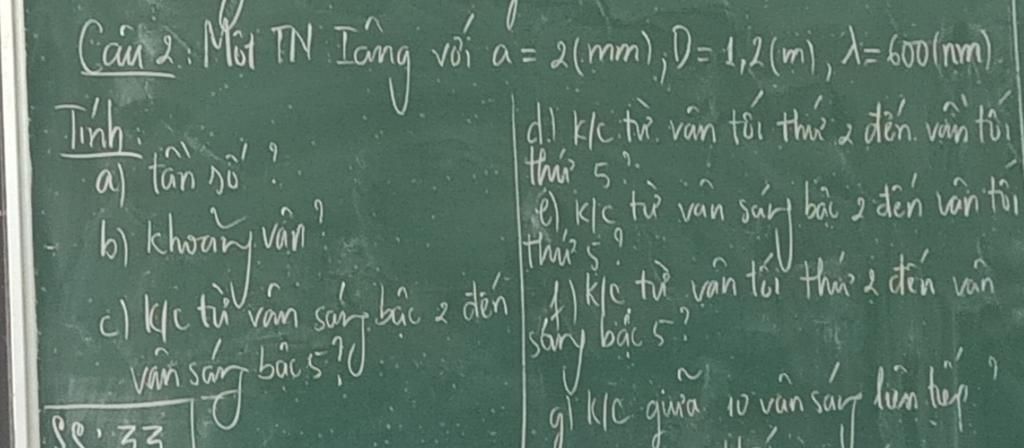 Câu 2: Một TN Iâng với a = 2(mm); D = 1,2(m), λ = 600(nm)
Tính:
a) tần số?
b) khoảng vân?
c) k/c từ vân sáng bậc 2 đến
vân sáng bậc 5?
d) k/c từ vân tối thứ 2 đến vân tối
thứ 5?
e) k/c từ vân sáng bậc 2 đến vân tối
thứ 5?
f) k/c từ vân tối thứ 2 đến vân
sáng bậc 5?
g) k/c giữa 10 vân sáng liên tiếp?
33